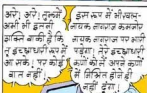 अरे! अरे! तुममें
अभी भी इतनी
शक्ति बाकी है कि
तू इच्छाधारी रूप में
आ सके; पर कोई
बात नहीं!
इस रूप में भी
नायक नागराज
नायक नागराज पर भारी
पड़ेगा! तेरे इच्छाधारी
कणों को मैं अपने कणों
में मिश्रित होने ही
नहीं दूंगा!